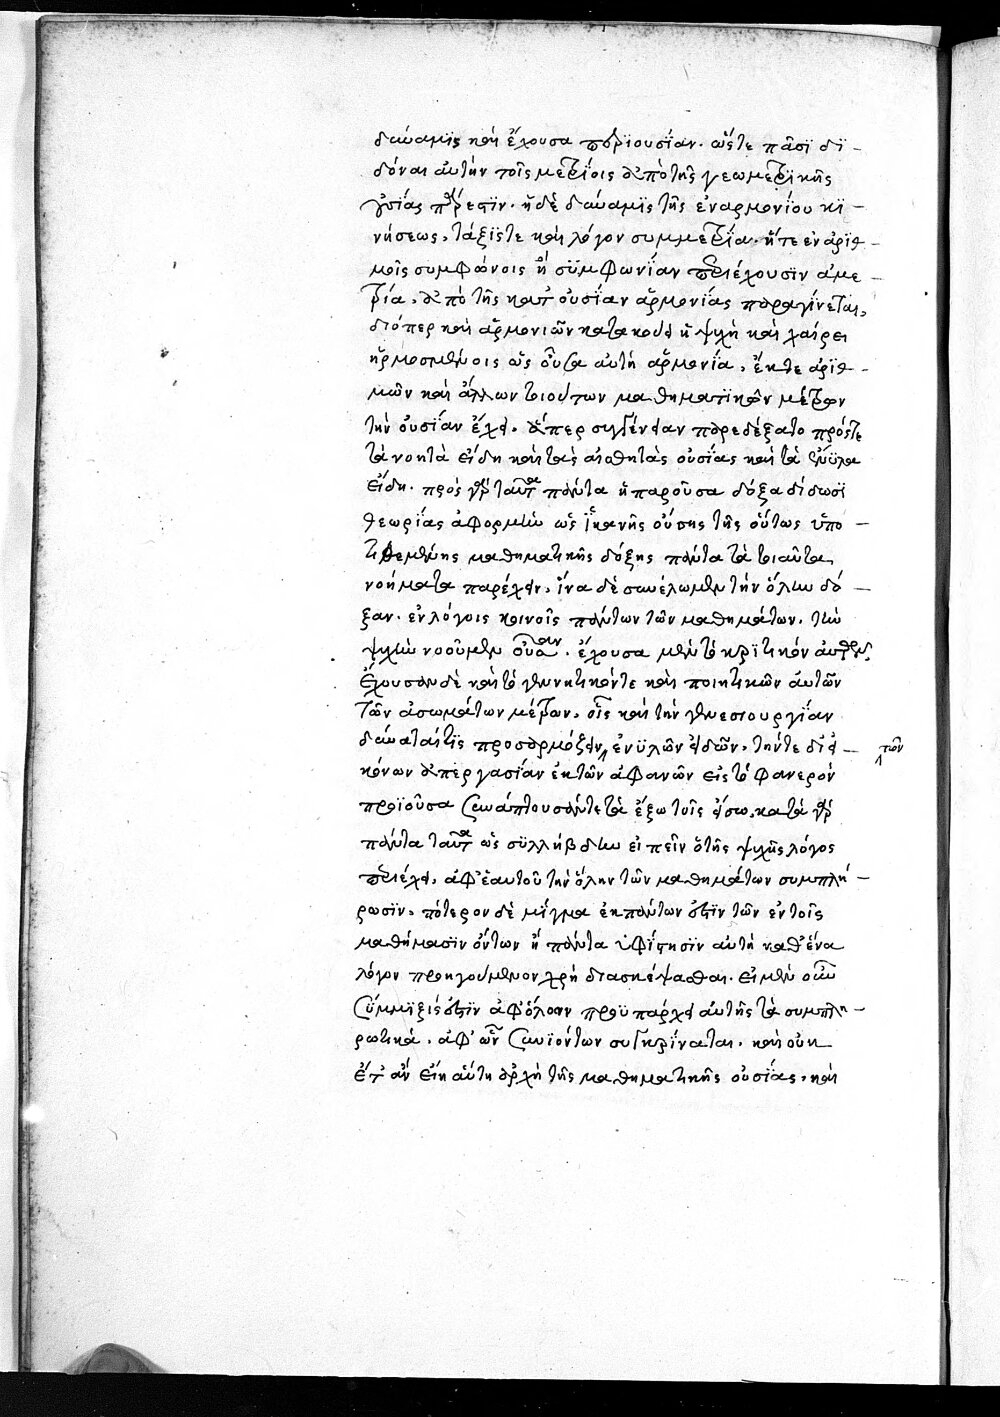 δύναμϊς καὶ ἔχουσα περϊουσΐαν. ὥστε πᾶσϊ δϊ-
δόναι αὐτὴν τοῖς μετρΐοις ἀπὸ τῆς γεωμετρϊκῆς
οὐσίας πάρεστϊν. ἡ δὲ δύναμϊς τῆς ἐναρμονΐου κϊ-
νήσεως, τάξΐς τε καὶ λόγον συμμετρΐα. ἥ τε ἐν ἀρϊθ-
μοῖς συμφώνοις ἢ σϋμφωνΐαν περϊέχουσϊν ἀμε-
τρία, ἀπὸ τῆς κατ' οὐσΐαν ἁρμονΐας παραγΐνεται,
διόπερ καὶ ἁρμονιῶν κατακούει ἡ ψυχὴ καὶ χαίρει
ἡρμοσμένοις ὡς οὖσα αὐτὴ ἁρμονΐα, ἔκ τε ἀρϊθ-
μῶν καὶ ἄλλων τοιούτων μαθηματϊκῶν μέτρων
τὴν οὐσΐαν ἔχει. ἅπερ συγγένειαν παρεδέξατο πρός τε
τὰ νοητὰ εἴδη καὶ τὰς αἰσθητὰς οὐσίας καὶ τὰ ἔνϋλα
εἴδη. πρὸς γὰρ ταῦτα πάντα ἡ παροῦσα δόξα δίδωσϊ
θεωρίας ἀφορμὴν ὡς ἱκανῆς οὔσης τῆς οὕτως ὑπο-
τιθεμένης μαθηματικῆς δόξης πάντα τὰ τοιαῦτα
νοήματα παρέχειν, ἵνα δὲ συνέλωμεν τὴν ὅλην δό-
ξαν. ἐν λόγοις κοινοῖς πάντων τῶν μαθημάτων. τὴν
ψυχὴν νοοῦμεν οὖσαν. ἔχουσα μὲν τὸ κρϊτικόν αὐτῶν,
ἔχουσαν δὲ καὶ τὸ γεννητικόν τε καὶ ποιητικῶν αὐτῶν
τῶν ἀσωμάτων μέτρων, οἷς καὶ τὴν γενεσιουργΐαν
δύναταί τϊς προσαρμόζειν, ἐνϋλῶν εἰδῶν, τήν τε δι' εἰ- τῶν
κόνων ἀπεργασΐαν ἐκ τῶν ἀφανῶν εἰς τὸ φανερὸν
προϊοῦσα συνάπτουσάν τε τὰ ἔξω τοῖς εἴσω, κατὰ γὰρ
πάντα ταῦτα ὡς σϋλλήβδην εἰπεῖν ὁ τῆς ψυχῆς λόγος
περϊέχει, ἀφ' ἑαυτοῦ τὴν ὅλην τῶν μαθημάτων συμπλή-
ρωσϊν, πότερον δὲ μΐγμα ἐκ πάντων ἐστϊν τῶν ἐν τοῖς
μαθήμασϊν ὄντων ἢ πάντα ὑφίστησϊν αὐτὴ καθ' ἕνα
λόγον προηγούμενον χρὴ διασκέψασθαι. εἰ μὲν οὖν
σύμμϊξίς ἐστϊν ἀφ' ὅλων προϋπάρχει αὐτῆς τὰ συμπλη-
ρωτικά. ἀφ' ὧν συνϊόντων συγκρίνεται. καὶ οὐκ
ἔτ' ἂν εἴη αὕτη ἀρχὴ τῆς μαθηματικῆς οὐσΐας, καὶ